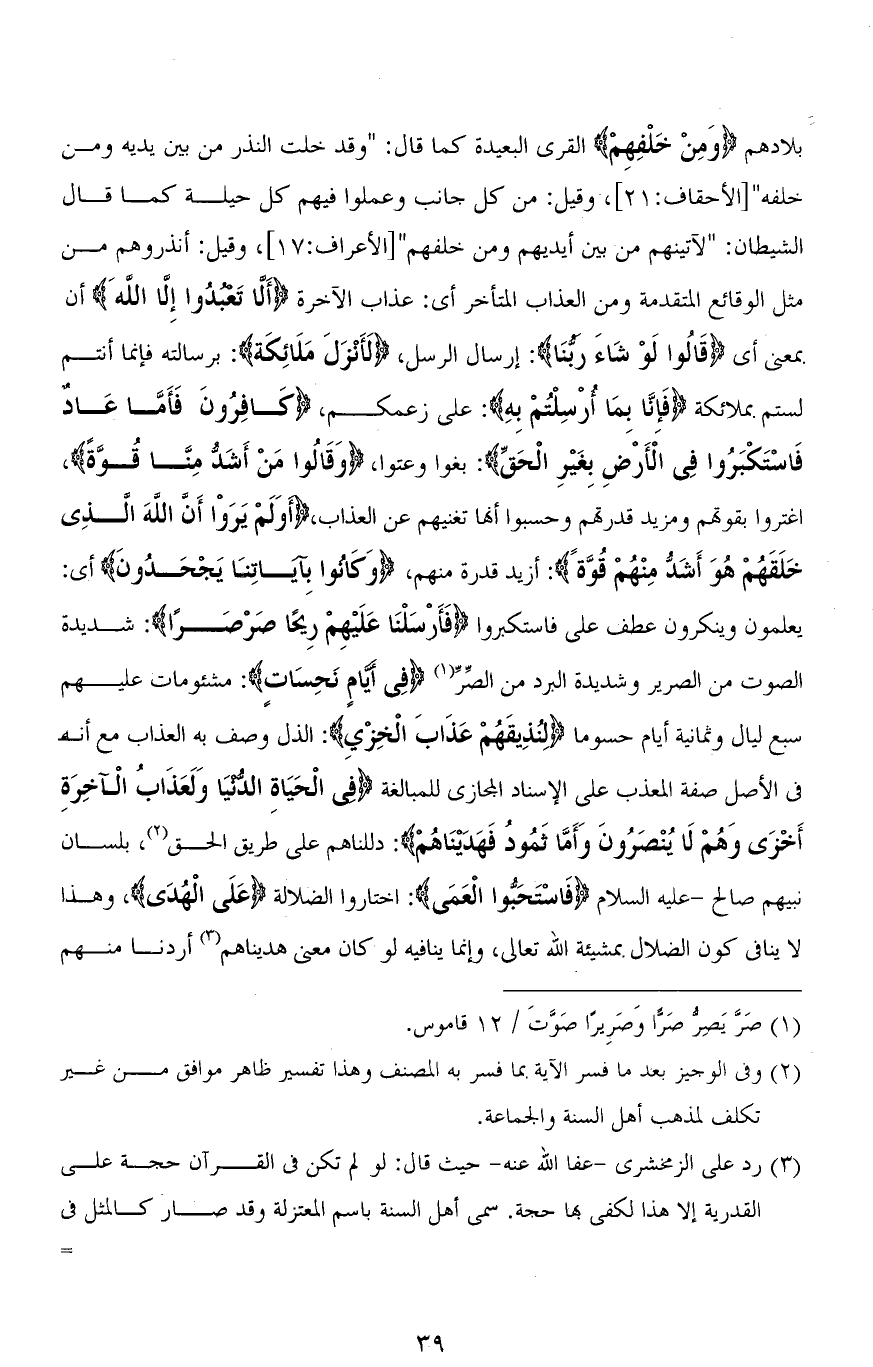 بلادهم ﴿وَمِنْ خَلْفِهِمْ﴾ القرى البعيدة كما قال: "وقد خلت النذر من بين يديه ومن
خلفه"[الأحقاف:٢١]، وقيل: من كل جانب وعملوا فيهم كل حيلة كما قال
الشيطان: "لآتينهم من بين أيديهم ومن خلفهم"[الأعراف:١٧]، وقيل: أنذروهم من
مثل الوقائع المتقدمة ومن العذاب المتأخر أى: عذاب الآخرة ﴿أَلَّا تَعْبُدُوا إِلَّا اللَّهَ﴾ أن
بمعنى أى ﴿قَالُوا لَوْ شَاءَ رَبُّنَا﴾: إرسال الرسل، ﴿لَأَنْزَلَ مَلَائِكَةً﴾: برسالته فإنما أنتم
لستم بملائكة ﴿فَإِنَّا بِمَا أُرْسِلْتُمْ بِهِ﴾: على زعمكم، ﴿كَافِرُونَ فَأَمَّا عَادٌ
فَاسْتَكْبَرُوا فِى الْأَرْضِ بِغَيْرِ الْحَقِّ﴾: بغوا وعتوا، ﴿وَقَالُوا مَنْ أَشَدُّ مِنَّا قُوَّةً﴾،
اغتروا بقوتهم ومزيد قدرتهم وحسبوا أنها تغنيهم عن العذاب،﴿أَوَلَمْ يَرَوْا أَنَّ اللَّهَ الَّذِى
خَلَقَهُمْ هُوَ أَشَدُّ مِنْهُمْ قُوَّةً﴾: أزيد قدرة منهم، ﴿وَكَانُوا بِآيَاتِنَا يَجْحَدُونَ﴾ أى:
يعلمون وينكرون عطف على فاستكبروا ﴿فَأَرْسَلْنَا عَلَيْهِمْ رِيحًا صَرْصَرًا﴾: شديدة
الصوت من الصرير وشديدة البرد من الصِّرِّ(١) ﴿فِى أَيَّامٍ نَحِسَاتٍ﴾: مشئومات عليهم
سبع ليال وثمانية أيام حسوما ﴿لِنُذِيقَهُمْ عَذَابَ الْخِزْيِ﴾: الذل وصف به العذاب مع أنه
فى الأصل صفة المعذب على الإسناد المجازى للمبالغة ﴿فِى الْحَيَاةِ الدُّنْيَا وَلَعَذَابُ الْآخِرَةِ
أَخْزَى وَهُمْ لَا يُنْصَرُونَ وَأَمَّا ثَمُودُ فَهَدَيْنَاهُمْ﴾: دللناهم على طريق الحق(٢)، بلسان
نبيهم صالح -عليه السلام ﴿فَاسْتَحَبُّوا الْعَمَى﴾: اختاروا الضلالة ﴿عَلَى الْهُدَى﴾، وهذا
لا ينافى كون الضلال بمشيئة الله تعالى، وإنما ينافيه لو كان معنى هديناهم(٣) أردنا منهم
(١) صَرَّ يَصِرُّ صَرًّا وَصَرِيرًا صَوَّتَ / ١٢ قاموس.
(٢) وفى الوجيز بعد ما فسر الآية بما فسر به المصنف وهذا تفسير ظاهر موافق من غير
تكلف لمذهب أهل السنة والجماعة.
(٣) رد على الزمخشرى -عفا الله عنه- حيث قال: لو لم تكن فى القرآن حجة على
القدرية إلا هذا لكفى بها حجة. سمى أهل السنة باسم المعتزلة وقد صار كالمثل فى
=
٣٩